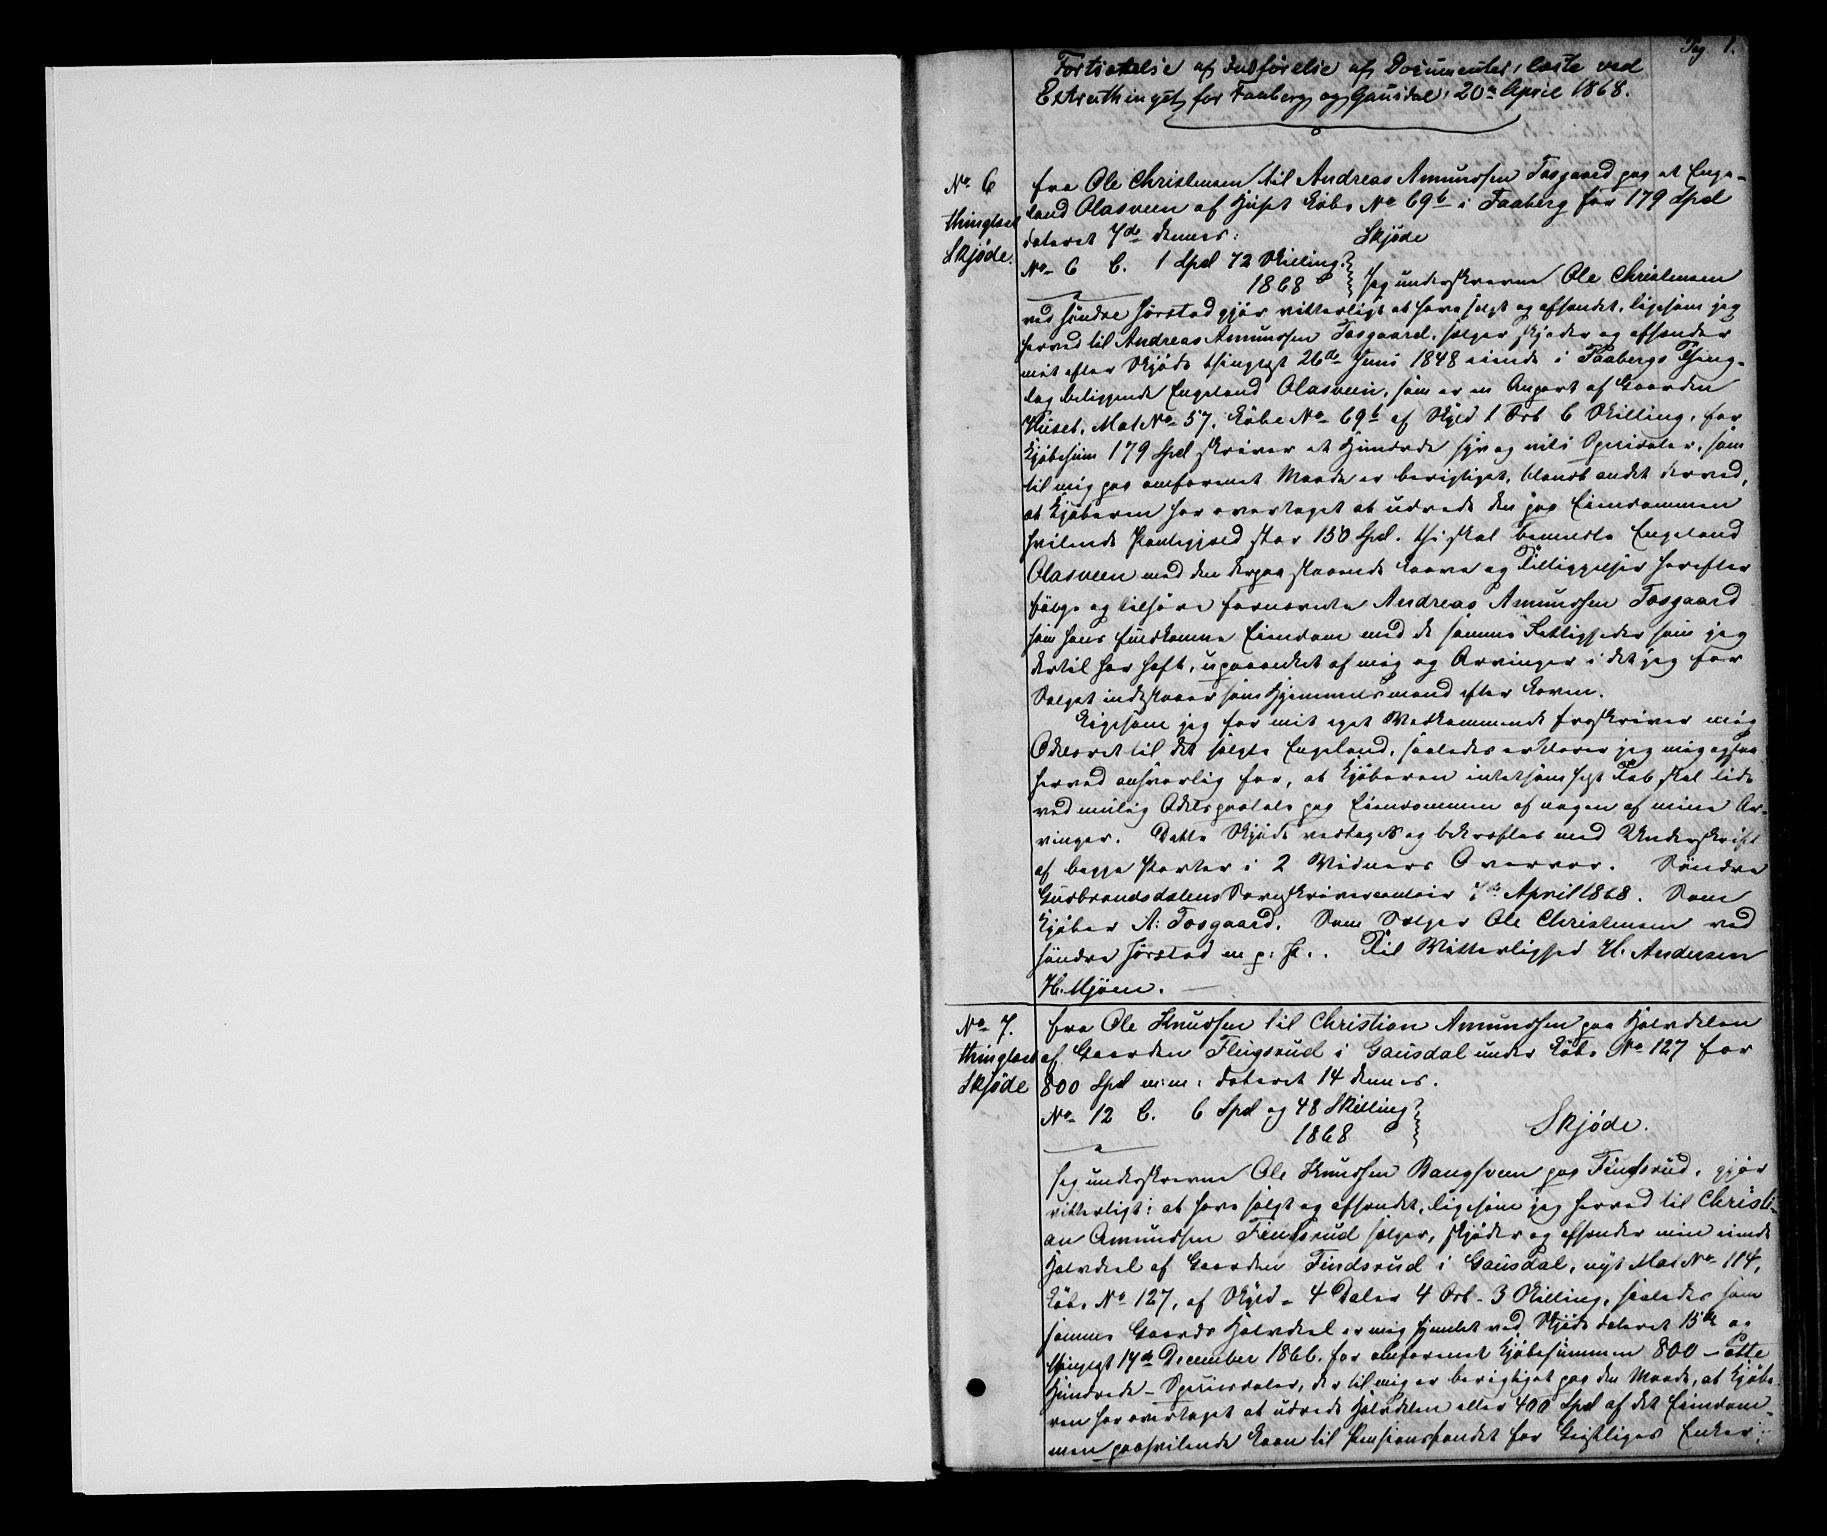 Pag 1.
Fortsættelse af Indførelse af Documenter, læste ved
Extrathinget for Faaberg og Gausdal, 20de April 1868.
No 6
thinglæst
Skjøde.
fra Ole Christensen til Andreas Amundsen Fosgaard paa et Enge-
land Olasveen af Huset Løbe No 69b i Faaberg for 179 Spd
dateret 7de dennes:
Skjøde
No 6 C. 1 Spd 72 Skilling.
1868
Jeg underskrevne Ole Christensen
ved søndre Jørstad gjør vitterligt at have solgt og afhændet, ligesom jeg
herved til Andreas Amundsen Fosgaard, sælger skjøder og afhænder
mit efter Skjøde thinglyst 26de Juni 1848 eiende i Faabergs Thing-
lag beliggende Engeland Olasveen, som er en Anpart af Gaarden
Huset, Mat No 57, Løbe No 69b af Skyld 1 Ort 6 Skilling, for
Kjøbesum 179 Spd skriver et Hundrede syv og niti Speciedaler, som
til mig paa omforenet Maade er berigtiget, blandt andet derved,
at Kjøberen har overtaget at udrede den paa Eiendommen
hvilende Pantegjæld stor 150 Spd. thi skal bemeldte Engeland
Olasveen med den derpaa staaende Laave og Tilliggelser herefter
følge og tilhøre fornævnte Andreas Amundsen Fosgaard
som hans fuldkomne Eiendom med de samme Rettigheder som jeg
dertil har haft, upaaanket af mig og Arvinger i det jeg for
Salget indestaaer som Hjemmelsmand efter Loven.
Ligesom jeg for mit eget Vedkommende fraskriver mig
Odelsret til det solgte Engeland, saaledes erklærer jeg mig ogsaa
herved ansvarlig for, at Kjøberen intetsomhelst Tab skal lide
ved mulig Odelspaatale paa Eiendommen af nogen af mine Ar-
vinger. Dette Skjøde vedtages og bekræftes med Underskrift
af begge Parter i 2 Vidners Overvær. Søndre
Gudbrandsdalens Sorenskrivercontoir 7de April 1868. Som
Kjøber A: Fosgaard. Som Sælger Ole Christensen ved
søndre Jørstad m. p: P.. Til Vitterlighed H. Andersen
H. Mjøen.
No 7.
thinglæst
Skjøde
fra Ole Knudsen til Christian Amundsen paa Halvdelen
af Gaarden Flugsrud i Gausdal under Løbe No 127 for
800 Spd m:m: dateret 14 dennes.
No 12 C. 6 Spd og 48 Skilling
1868
Skjøde.
Jeg underskrevne Ole Knudsen Bangsveen paa Findsrud, gjør
vitterligt: at have solgt og afhændet, ligesom jeg herved til Christi-
an Amundsen Findsrud sælger, skjøder og afhænder min eiende
Halvdeel af Gaarden Findsrud i Gausdal, nyt Mat No 114,
Løbe No 127, af Skyld - 4 Daler 4 Ort - 3 Skilling, saaledes som
samme Gaards Halvdeel er mig hjemlet ved Skjøde dateret 15de og
thinglyst 17de December 1866. for omforenet Kjøbesummen 800 - Otte
Hundrede - Speciedaler, der til mig er berigtiget paa den Maade, at Kjøbe-
ren har overtaget at udrede Halvdelen eller 400 Spd af det Eiendom-
men paahvilende Laan til Pensionsfondet for Geistliges Enker